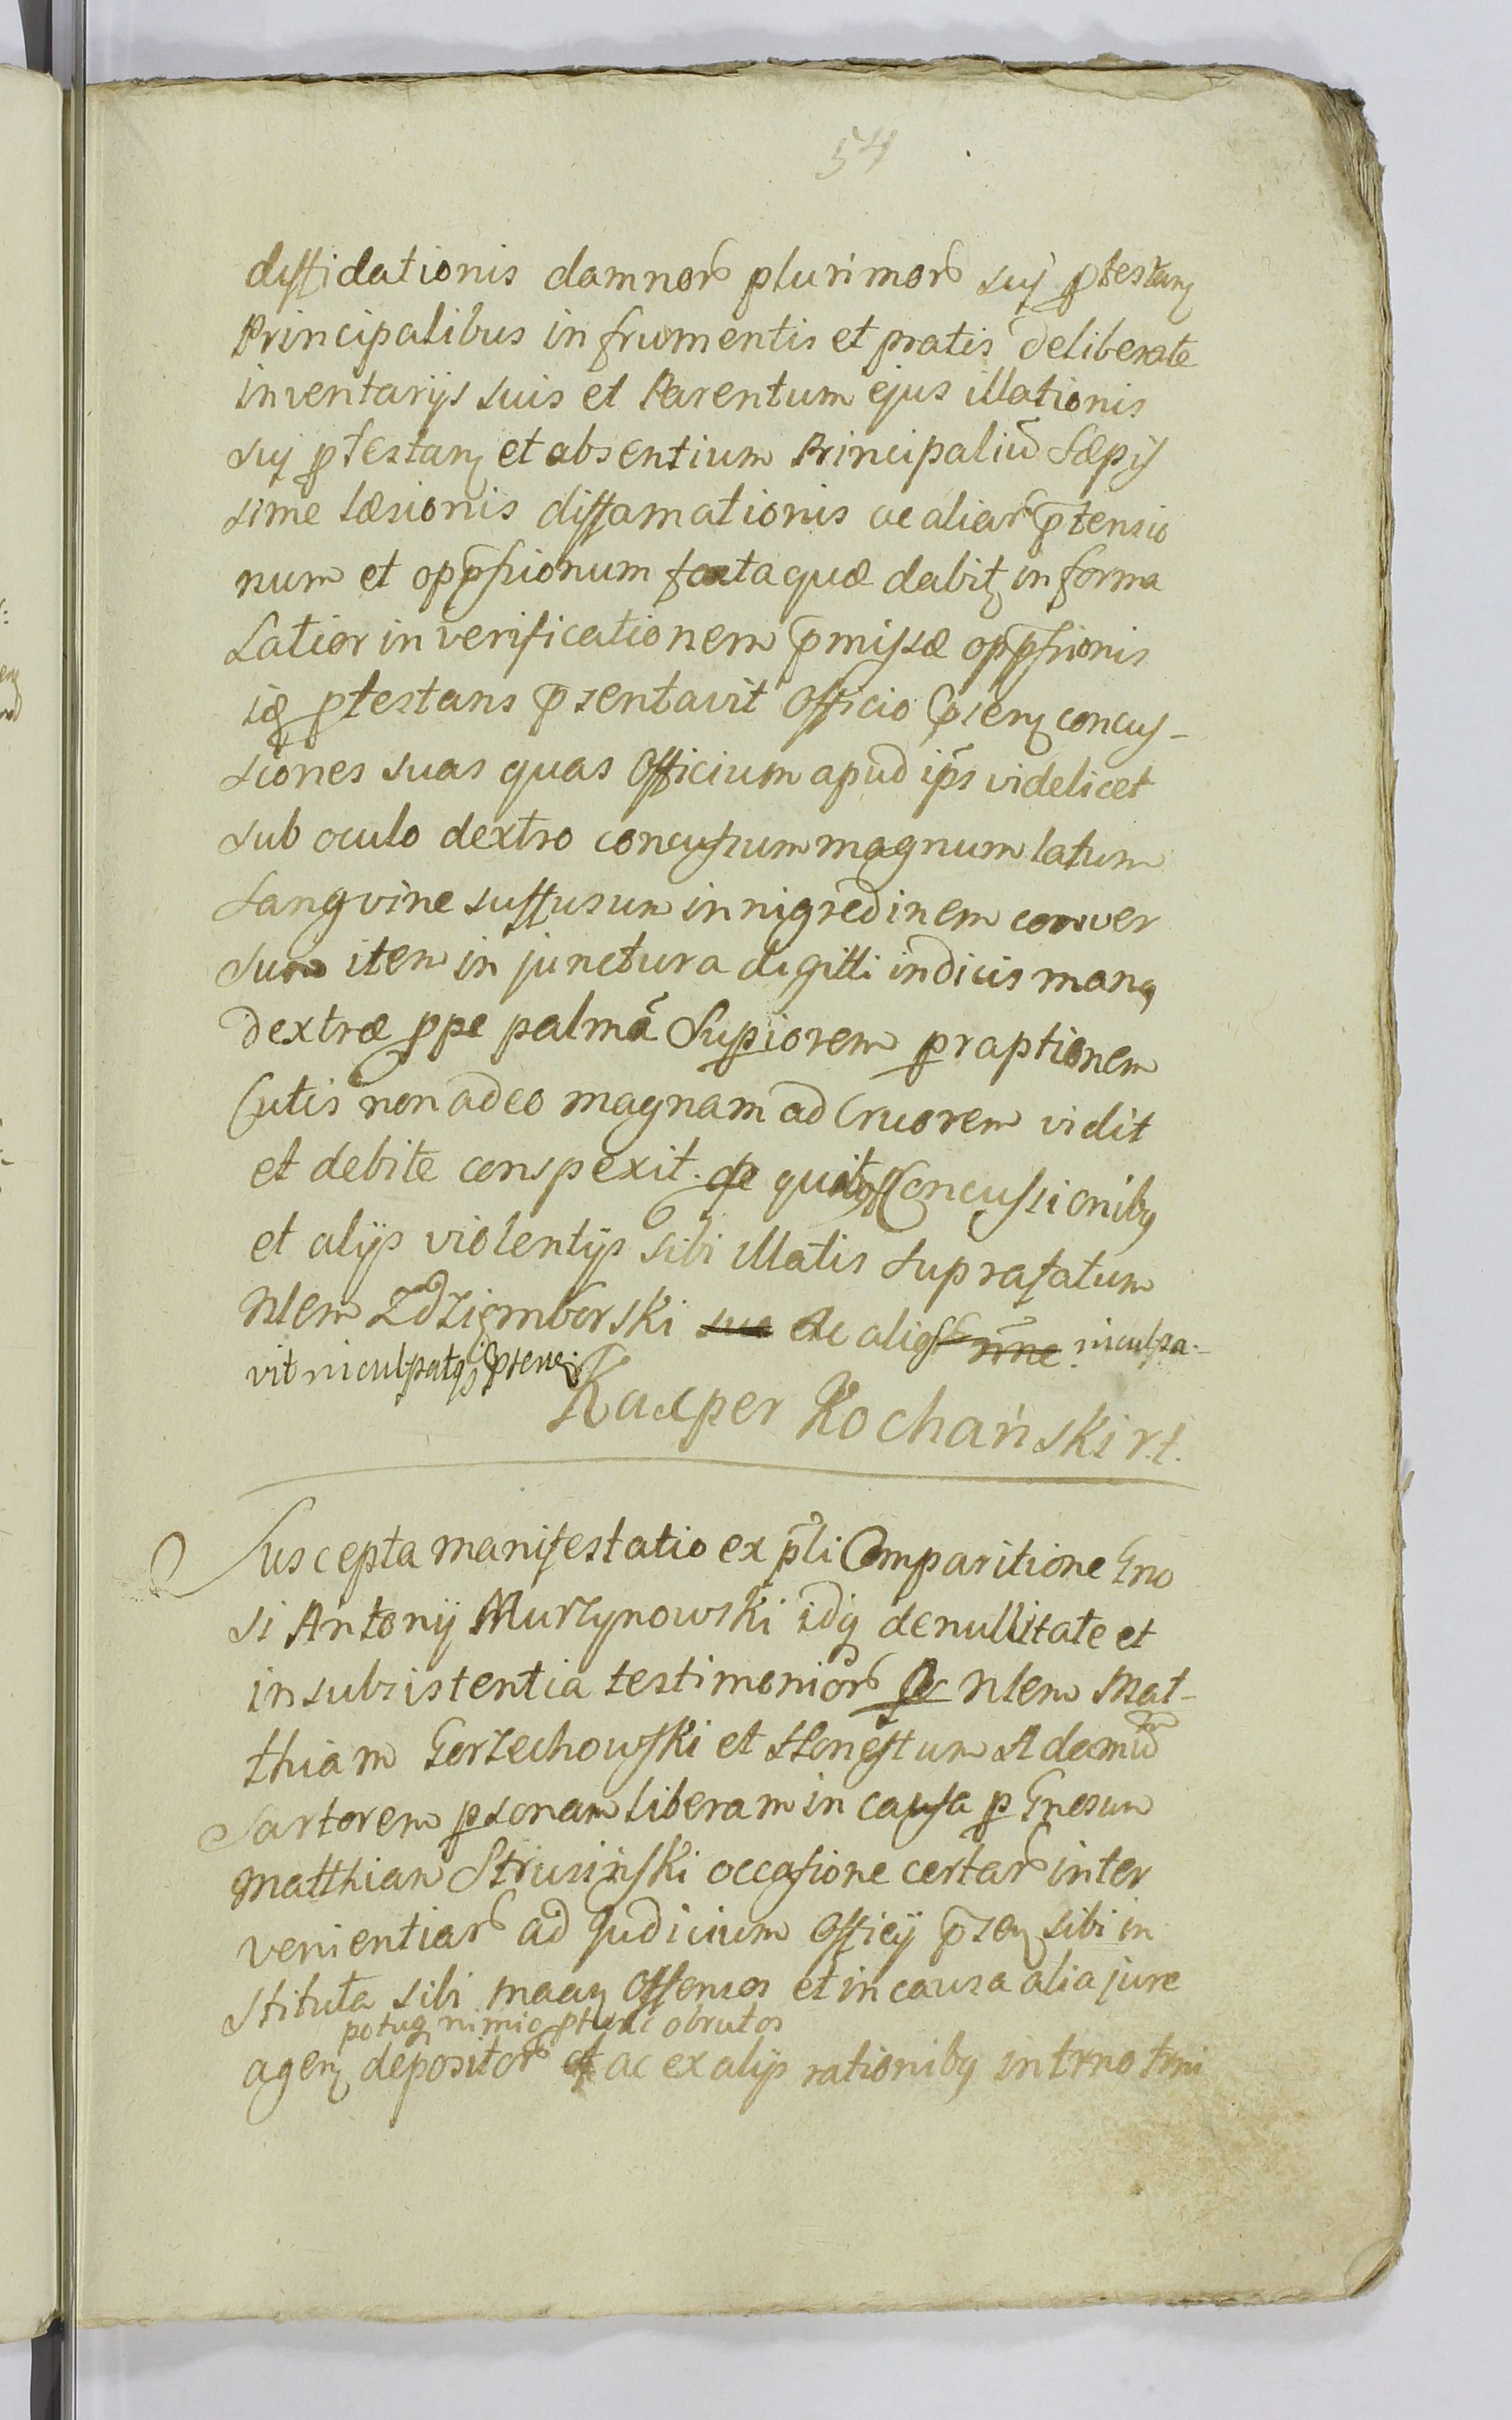 54
diffidationis damnor plurimor sui ptestan
Principalibus in frumentis et pratis deliberate
inventarijs suis et Parentum ejus illationis
sui ptestan et absentium Principaliu Sæpis
sime læsionis diffamationis ac aliar ptensio
num et oppssionum facta quæ dabit in forma
Latior in verificationem pmissæ oppssionis
idq ptestans psentavit Officio psen concus-
siones suas quas Officium apud ips videlicet
sub oculo dextro concussum magnum latum
Sangvine suffusum in nigredinem conver
sum item in junctura digitti indicis manq
dextræ ppe palmā Supiorem praptionem
Cutis non adeo magnam ad Cruorem vidit
et debite conspexit. de quibq Concussionibq
et alijs violentijs sibi illatis suprafatum
Nlem Zdziemborski ac alios inculpa-
vit inculpatq psen.
Kacper Kochański r.t.
Suscepta manifestatio ex pli Comparitione Gno
si Antonij Murzynowski idq de nullitate et
insubsistentia testimonior Nlem Mat-
thiam Gorzechowski et Honestum Adamu
Sartorem psonam liberam in causa p Gnosum
Matthiam Strusinski occasione certar inter
venientiar ad Judicium Officij psen sibi in
stituta sibi offensos et in causa alia jure
potuq nimio ptunc obrutos
agen depositor ac ex alijs rationibq intrno trni